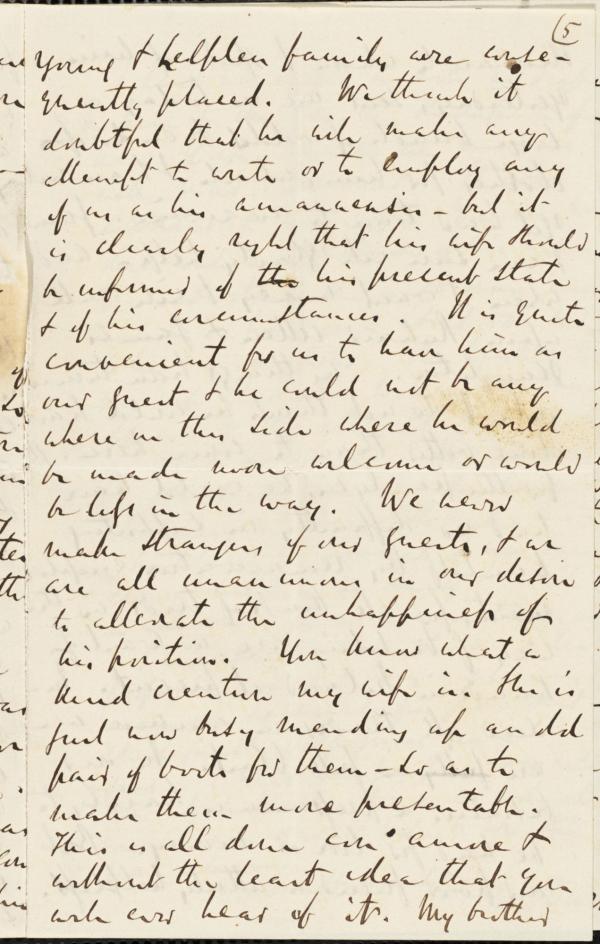 (5
young & helpless family are conse-
quently placed. We think it
doubtful that he will make any
attempt to write or to employ any
of us as his amanuensis - but it
is clearly right that his wife should
be informed of the his present state
& of his circumstances. It is quite
convenient for us to have him as
our guest & he could not be any
where on this side where he would
be made more welcome or would
be less in the way. We never
make strangers of our guests, & we
are all unanimous in our desire
to alleviate the unhappiness of
his position. You know what a
kind creature my wife is. She is
just now busy mending up an old
pair of boots for them - so as to
make them more presentable.
This is all done con amore &
without the least idea that you
will ever hear of it. My brother